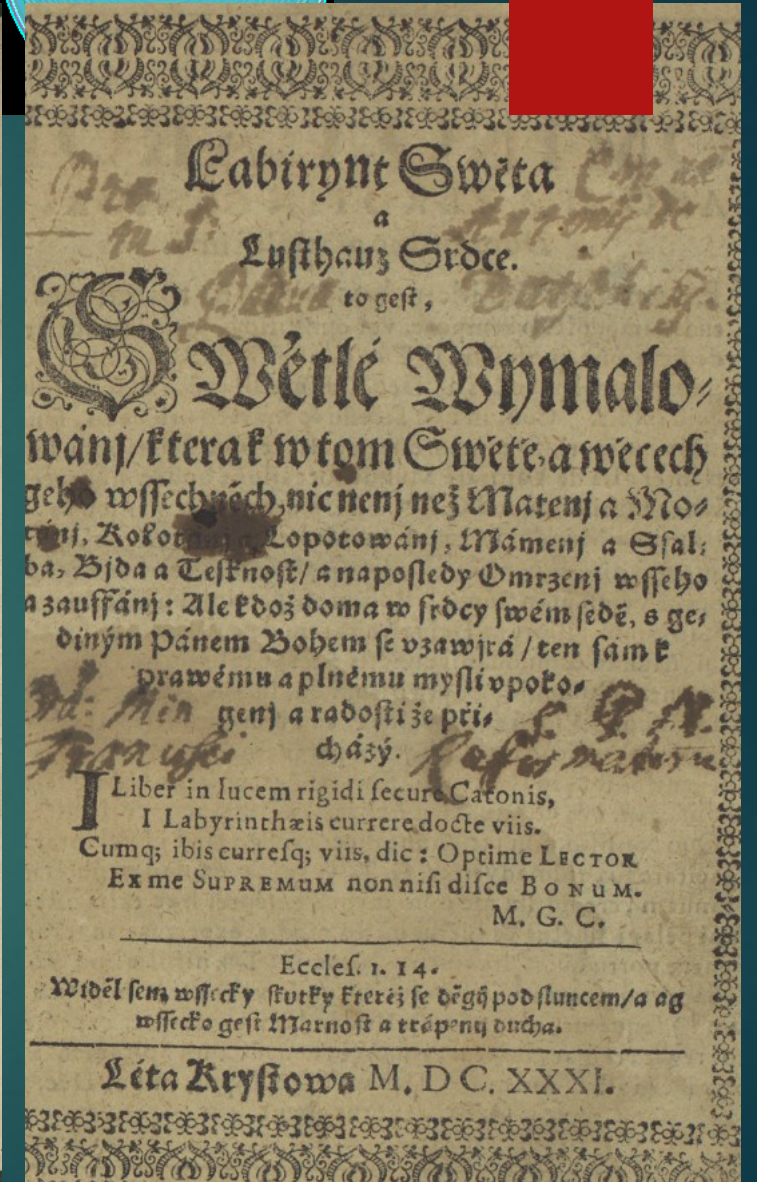 Labirynt Swěta
a
Lusthauz Srdce.
to gest,
SWětlé Wymalo⸗
wánj/kterak w tom Swětě, a wěcech
geho wssechněch, nic nenj než Matenj a Mo⸗
Lopotowánj, Mámenj a Ssal⸗
ba, Bjda a Tesknost/ a naposledy Omrzenj wsseho
a zauffánj: Ale kdož doma w srdcy swém sedě, s ge⸗
diným Pánem Bohem se vzawjrá / ten sám k
prawému a plnému mysli vpoko⸗
genj a radosti že při⸗
cházý.
I Liber in lucem rigidi secure Catonis,
I Labyrinthæis currere docte viis.
Cumq; ibis curresq; viis, dic : Optime LECTOR
Ex me SUPREMUM non nisi disce BONUM.
M. G. C.
Eccles. 1. 14.
Widěl sem wssecky skutky kteréž se děgij pod sluncem/a ag
wssecko gest Marnost a trápenij ducha.
Léta Krystowa M. DC. XXXI.